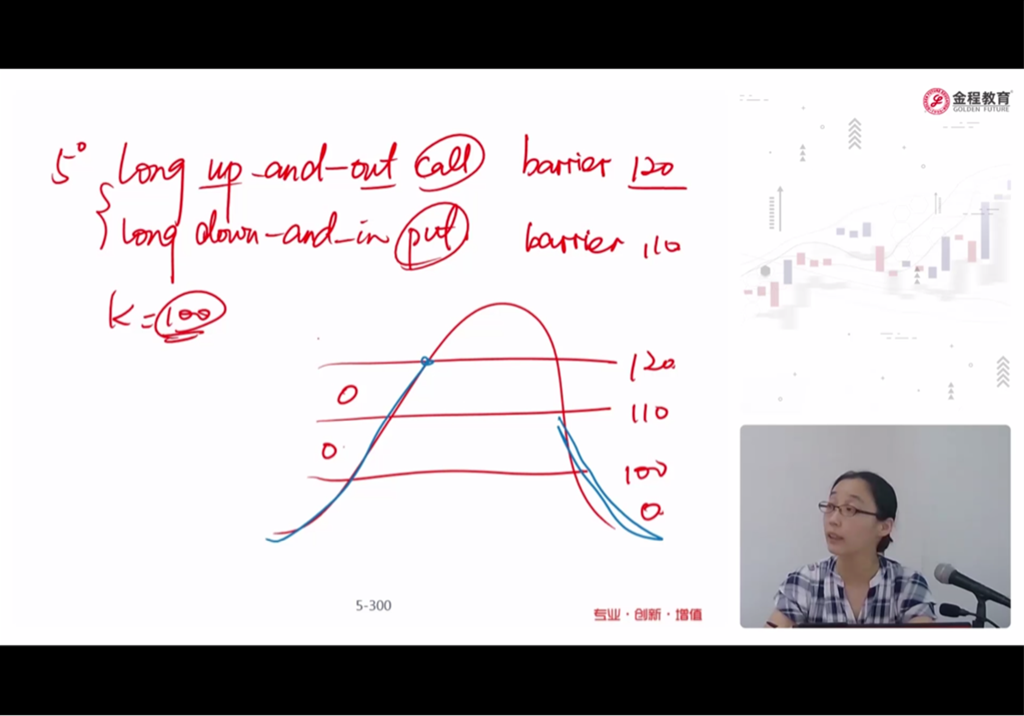 金程教育
GOLDEN FUTURE
5° long up-and-out call barrier 120
long down-and-in put barrier 110
K=100
120
0
110
0
100
0
5-300
专业·创新·增值